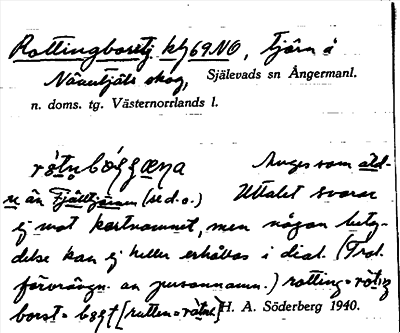 Rottingborstj. kbl 69NO, Tjärn å
Nåäntjäls skog, Själevads sn Ångermanl.
n. doms. tg. Västernorrlands l.
Anges som äld-
re än Fjälltjärnen (se d. o.) Uttalet svarar
ej mot kartnamnet, men någon bety-
delse kan ej heller erhållas i dial. (Trol.
förvrängn. av personnamn.) rotting =
borst = [rutten =
H. A. Söderberg 1940.